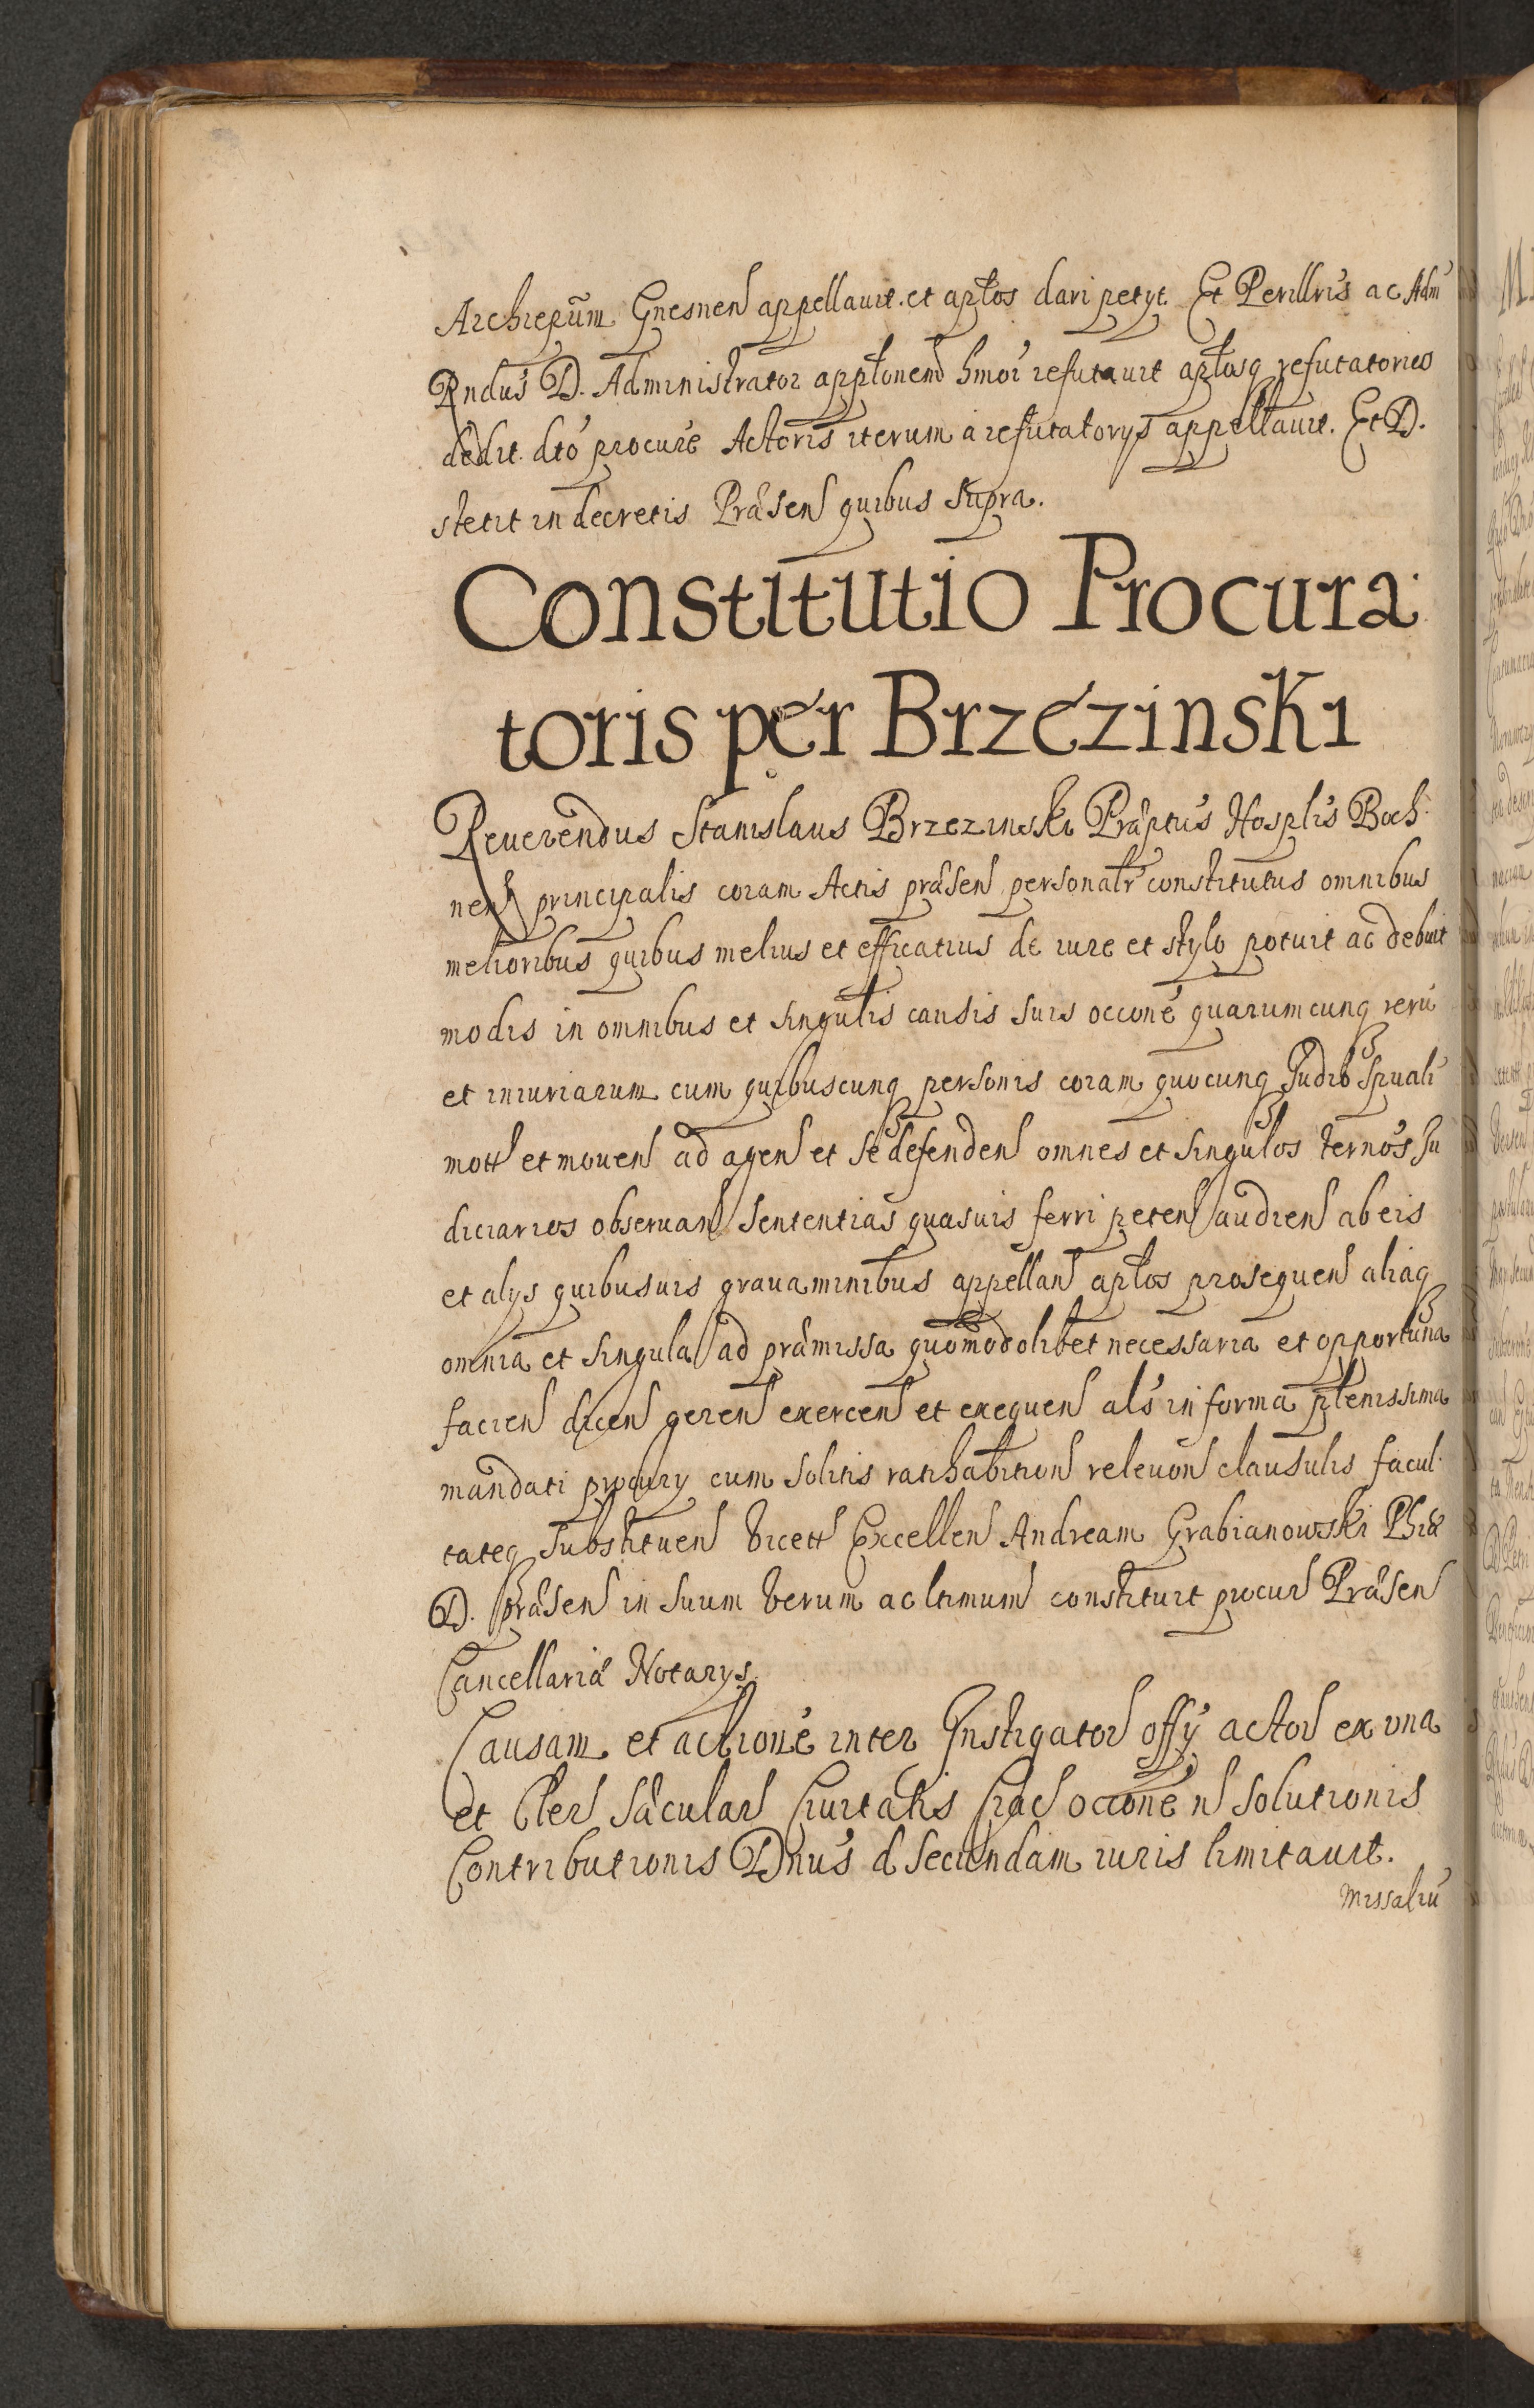 Archiepūm Gnesnen appellauit. et apłos dari petyt. Et Perillris ac Adm
Rndus D. Administrator appłonem hmoi refutauit apłosq refutatorios
dedit. dto procure Actoris iterum a refutatorys appellauit. Et D.
stetit in decretis Præsen quibus supra.
Constitutio Procura
toris per Brzezinski
Reuerendus Stanislaus Brzezinski Præptus Hosplis Boch
nen principalis coram Actis præsen personalr constitutus omnibus
melioribus quibus melius et efficatius de iure et stylo potuit ac debuit
modis in omnibus et singulis causis suis occone quarumcunq reru
et iniuriarum cum quibuscunq personis coram quocunq Judio spuali
mott et mouen ad agen et se defenden omnes et singulos ternos Ju
diciarios obseruan sententias quasuis ferri peten audien ab eis
et alys quibusuis grauaminibus appellan apłos prosequen aliaq
omnia et singula ad præmissa quomodolibet necessaria et opportuna
facien dicen geren exercen et exequen als in forma plenissima
mandati procury cum solitis ratihabition releuon clausulis facul
tateq substituen vicett Excellen Andream Grabianowski Phiæ
D. præsen in suum verum ac ltimum constituit procur Præsen
Cancellariæ Notarys
Causam et actione inter Instigator offy actor ex una
et Cler sæcular Ciuitatis Crac occone n solutionis
Contributionis Dnus d secundam iuris limitauit.
Missaliu